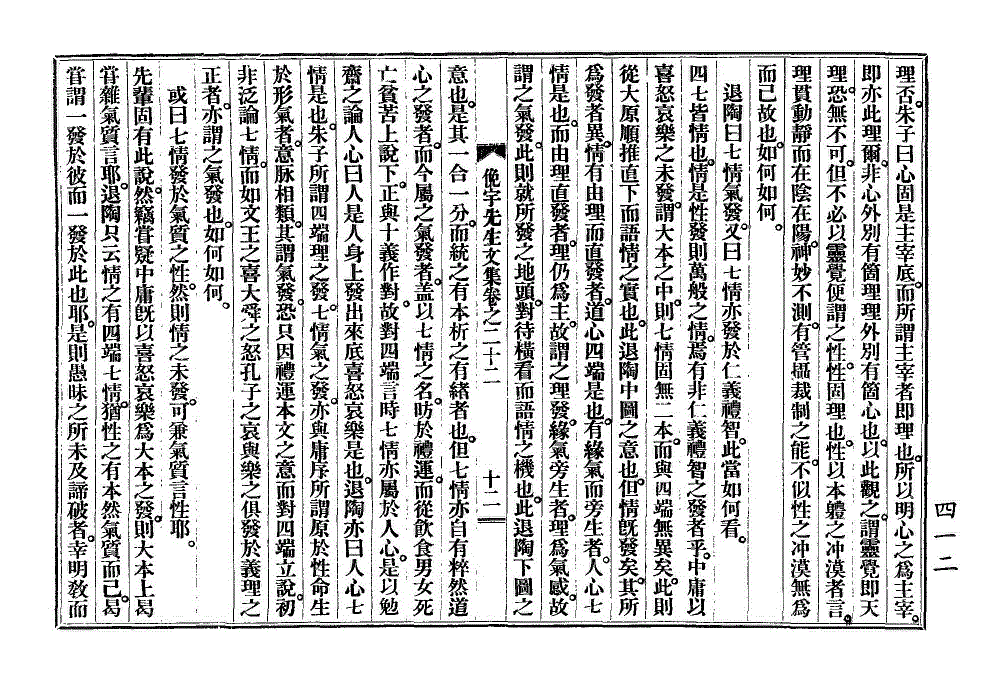 理否。朱子曰心固是主宰底。而所謂主宰者即理也。所以明心之爲主宰。
即亦此理爾。非心外別有箇理理外別有箇心也。以此觀之。謂靈覺即天
理。恐無不可。但不必以靈覺便謂之性。性固理也。性以本軆之冲漠者言。
理貫動靜而在陰在陽。神妙不測。有管攝裁制之能。不似性之冲漠無爲
而已故也。如何如何。
退陶曰七情氣發。又曰七情亦發於仁義禮智。此當如何看。
四七皆情也。情是性發則萬般之情。焉有非仁義禮智之發者乎。中庸以
喜怒哀樂之未發。謂大本之中。則七情固無二本。而與四端無異矣。此則
從大原順推直下而語情之實也。此退陶中圖之意也。但情旣發矣。其所
爲發者異。情有由理而直發者。道心四端是也。有緣氣而旁生者。人心七
情是也。而由理直發者。理仍爲主。故謂之理發。緣氣旁生者。理爲氣感。故
謂之氣發。此則就所發之地頭。對待橫看而語情之機也。此退陶下圖之
俛宇先生文集卷之二十二　十二
意也。是其一合一分。而統之有本析之有緖者也。但七情亦自有粹然道
心之發者。而今屬之氣發者。盖以七情之名。昉於禮運。而從飮食男女死
亡貧苦上說下。正與十義作對。故對四端言時七情亦屬於人心。是以勉
齋之論人心曰人是人身上發出來底喜怒哀樂是也。退陶亦曰人心七
情是也。朱子所謂四端理之發。七情氣之發。亦與庸序所謂原於性命生
於形氣者。意脉相類。其謂氣發。恐只因禮運本文之意而對四端立說。初
非泛論七情。而如文王之喜大舜之怒孔子之哀與樂之俱發於義理之
正者。亦謂之氣發也。如何如何。
或曰七情發於氣質之性。然則情之未發。可兼氣質言性耶。
先輩固有此說。然竊甞疑中庸旣以喜怒哀樂爲大本之發。則大本上曷
甞雜氣質言耶。退陶只云情之有四端七情。猶性之有本然氣質而已。曷
甞謂一發於彼而一發於此也耶。是則愚昧之所未及諦破者。幸明敎而
四一二